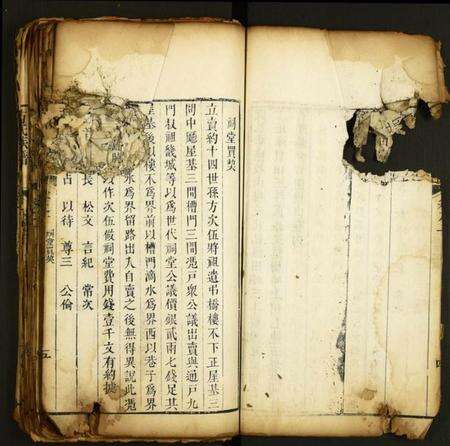 祠堂買契
立賣約十四世孫方次伍將祖遺弔橋樓不下正屋基三
間中廳屋基三間槽門三間憑戶衆公議出賣與通戶九
門叔祖畿城等以爲世代祠堂公議價銀貳兩七錢足其
屋基後以樓不爲界前以槽門滴水爲界西以巷子爲界
水爲界留路出入自賣之後無得異説此憑
以作次伍做祠堂費用錢壹千文有約據
長 松文 言紀 常次
占 以待 尊三 公倫
祠堂買契
五